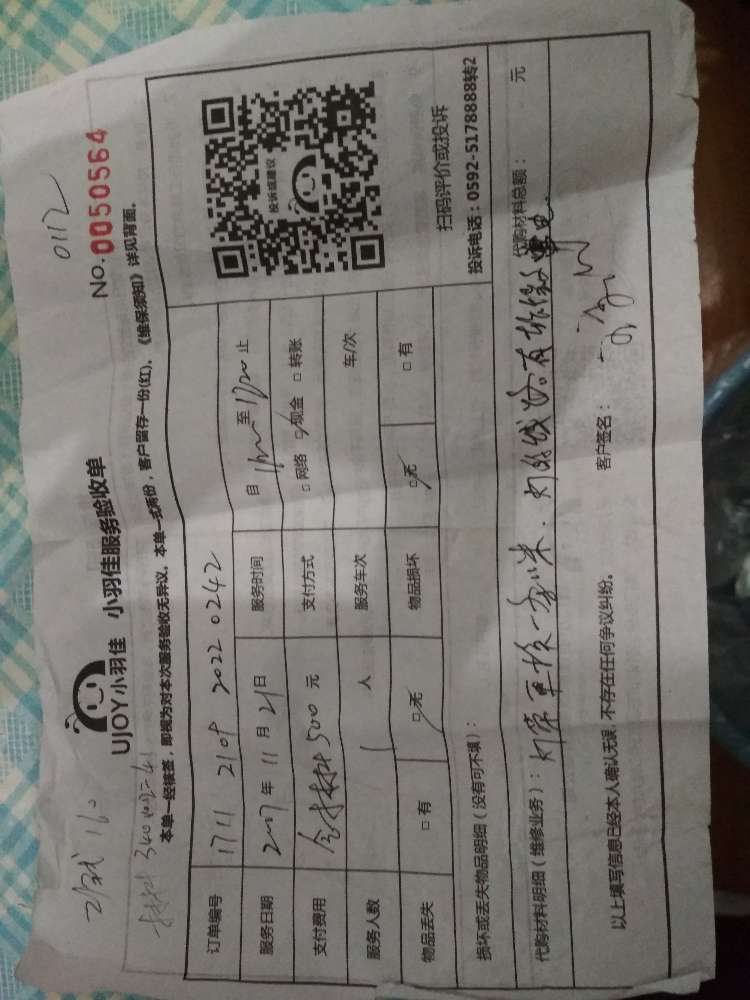 0112
No.0050564
UJOY小羽佳 小羽佳服务验收单
材料
本单一经接签，即视为对本次服务验收无异议。本单一式两份，客户留存一份(红)，《维保须知》详见背面。
订单编号 1711 2109 2022 0242
服务日期 2017 年 11 月 21 日 服务时间 自 至 止
支付费用 含材料 500 元 支付方式 □ 网络 □ 现金 □ 转账
服务人数 1 人 服务车次 车/次
物品丢失 □ 有 □ 无 物品损坏 □ 无 □ 有
投诉或建议
扫码评价或投诉
投诉电话：0592-5178888转2
损坏或丢失物品明细（没有可不填）：
代购材料明细（维修业务）： 代购材料总额： 元
以上填写信息已经本人确认无误，不存在任何争议纠纷。 客户签名：